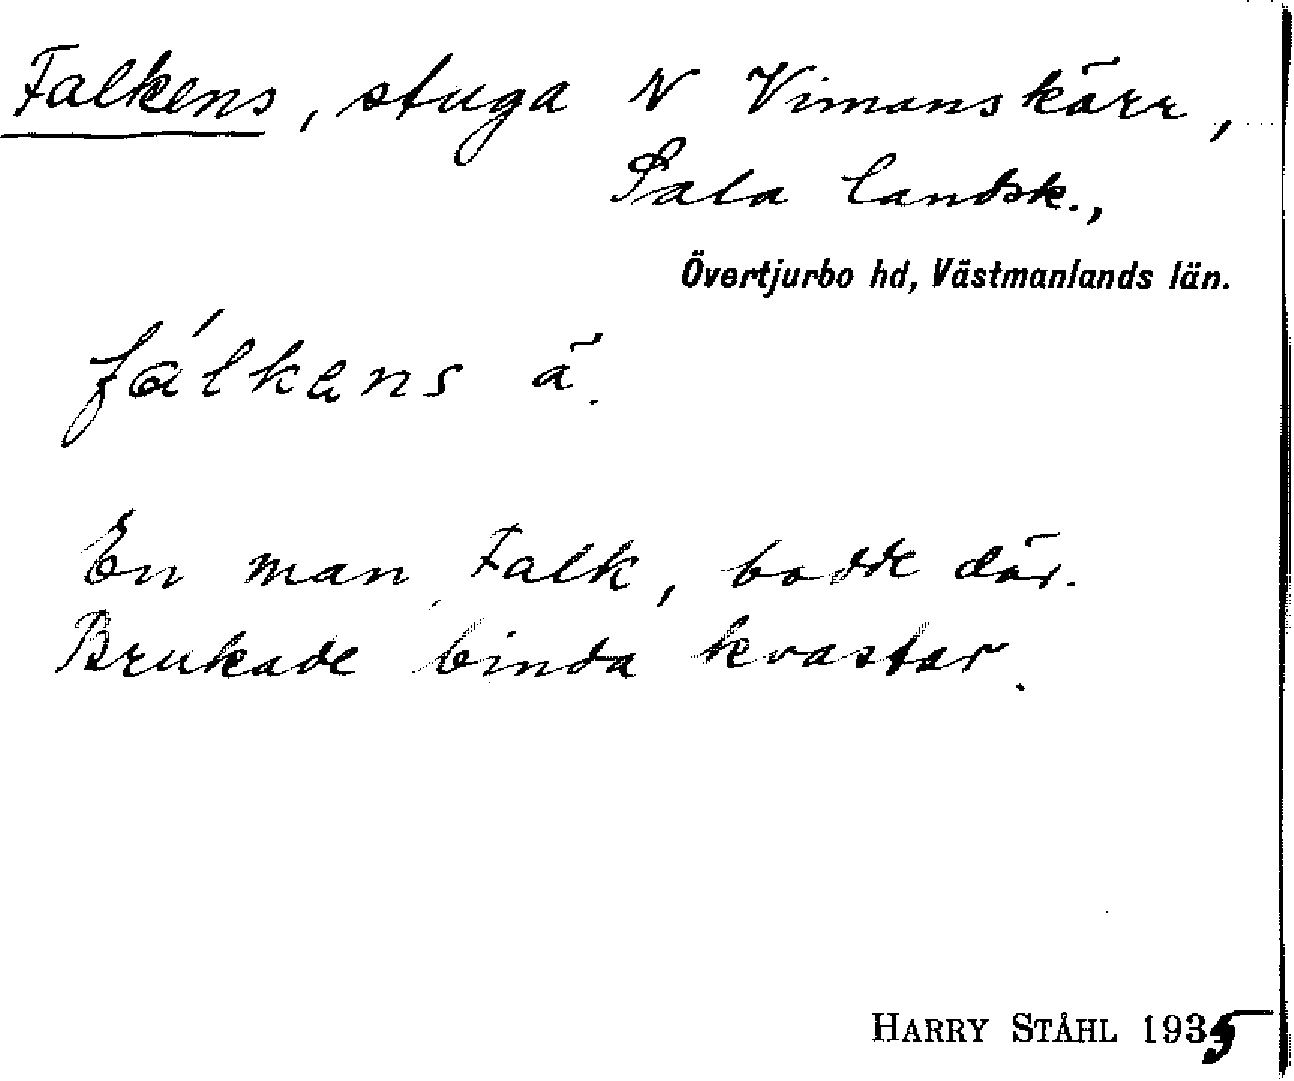 Falkens, stuga N Vimanskärr,
Sala landsk.,
Övertjurbo hd, Västmanlands län.
fálkens ä.
En man, Falk, bodde där.
Brukade binda kvastar.
HARRY STÅHL 1935